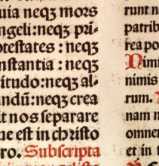 uia neqꝫ mors
ngeli: neqꝫ pn̄-
otestates: neqꝫ
nstantia: neqꝫ
titudo: neqꝫ al-
ndū: neqꝫ crea
it nos separare
ne est in christo
ro. Subscripta
runt n
patrib
rea po
Nimis
nimis
rum.
nam n
omnet
et in